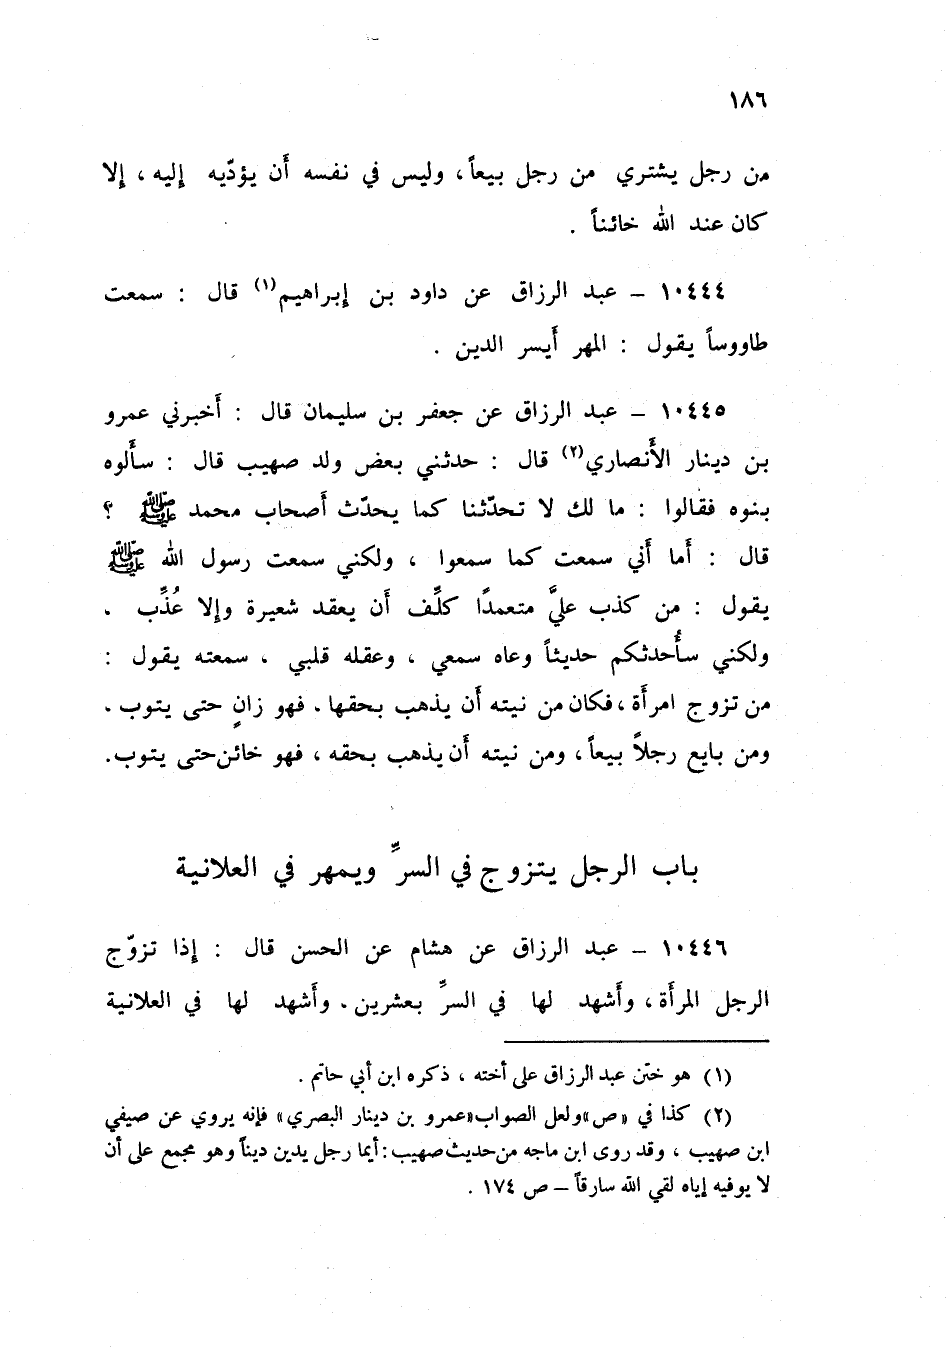 ١٨٦
من رجل يشتري من رجل بيعاً، وليس في نفسه أن يؤدّيه إليه ، إلا
كان عند الله خائناً .
١٠٤٤٤ – عبد الرزاق عن داود بن إبراهيم(١) قال : سمعت
طاووساً يقول : المهر أيسر الدين .
١٠٤٤٥ – عبد الرزاق عن جعفر بن سليمان قال : أخبرني عمرو
بن دينار الأنصاري(٢) قال : حدثني بعض ولد صهيب قال : سألوه
بنوه فقالوا : ما لك لا تحدّثنا كما يحدّث أصحاب محمد ﷺ ؟
قال : أما أني سمعت كما سمعوا ، ولكني سمعت رسول الله ﷺ
يقول : من كذب عليَّ متعمدًا كلِّف أن يعقد شعيرة وإلا عُذِّب .
ولكني سأُحدثكم حديثاً وعاه سمعي ، وعقله قلبي ، سمعته يقول :
من تزوج امرأة ، فكان من نيته أن يذهب بحقها . فهو زانٍ حتى يتوب .
ومن بايع رجلاً بيعاً ، ومن نيته أن يذهب بحقه ، فهو خائن حتى يتوب .
باب الرجل يتزوج في السرِّ ويمهر في العلانية
١٠٤٤٦ – عبد الرزاق عن هشام عن الحسن قال : إذا تزوّج
الرجل المرأة ، وأشهد لها في السرِّ بعشرين . وأشهد لها في العلانية
(١) هو ختن عبد الرزاق على أخته ، ذكره ابن أبي حاتم .
(٢) كذا في «ص» ولعل الصواب «عمرو بن دينار البصري» فإنه يروي عن صيفي
ابن صهيب ، وقد روى ابن ماجه من حديث صهيب : أيما رجل يدين ديناً وهو مجمع على أن
لا يوفيه إياه لقي الله سارقاً – ص ١٧٤ .